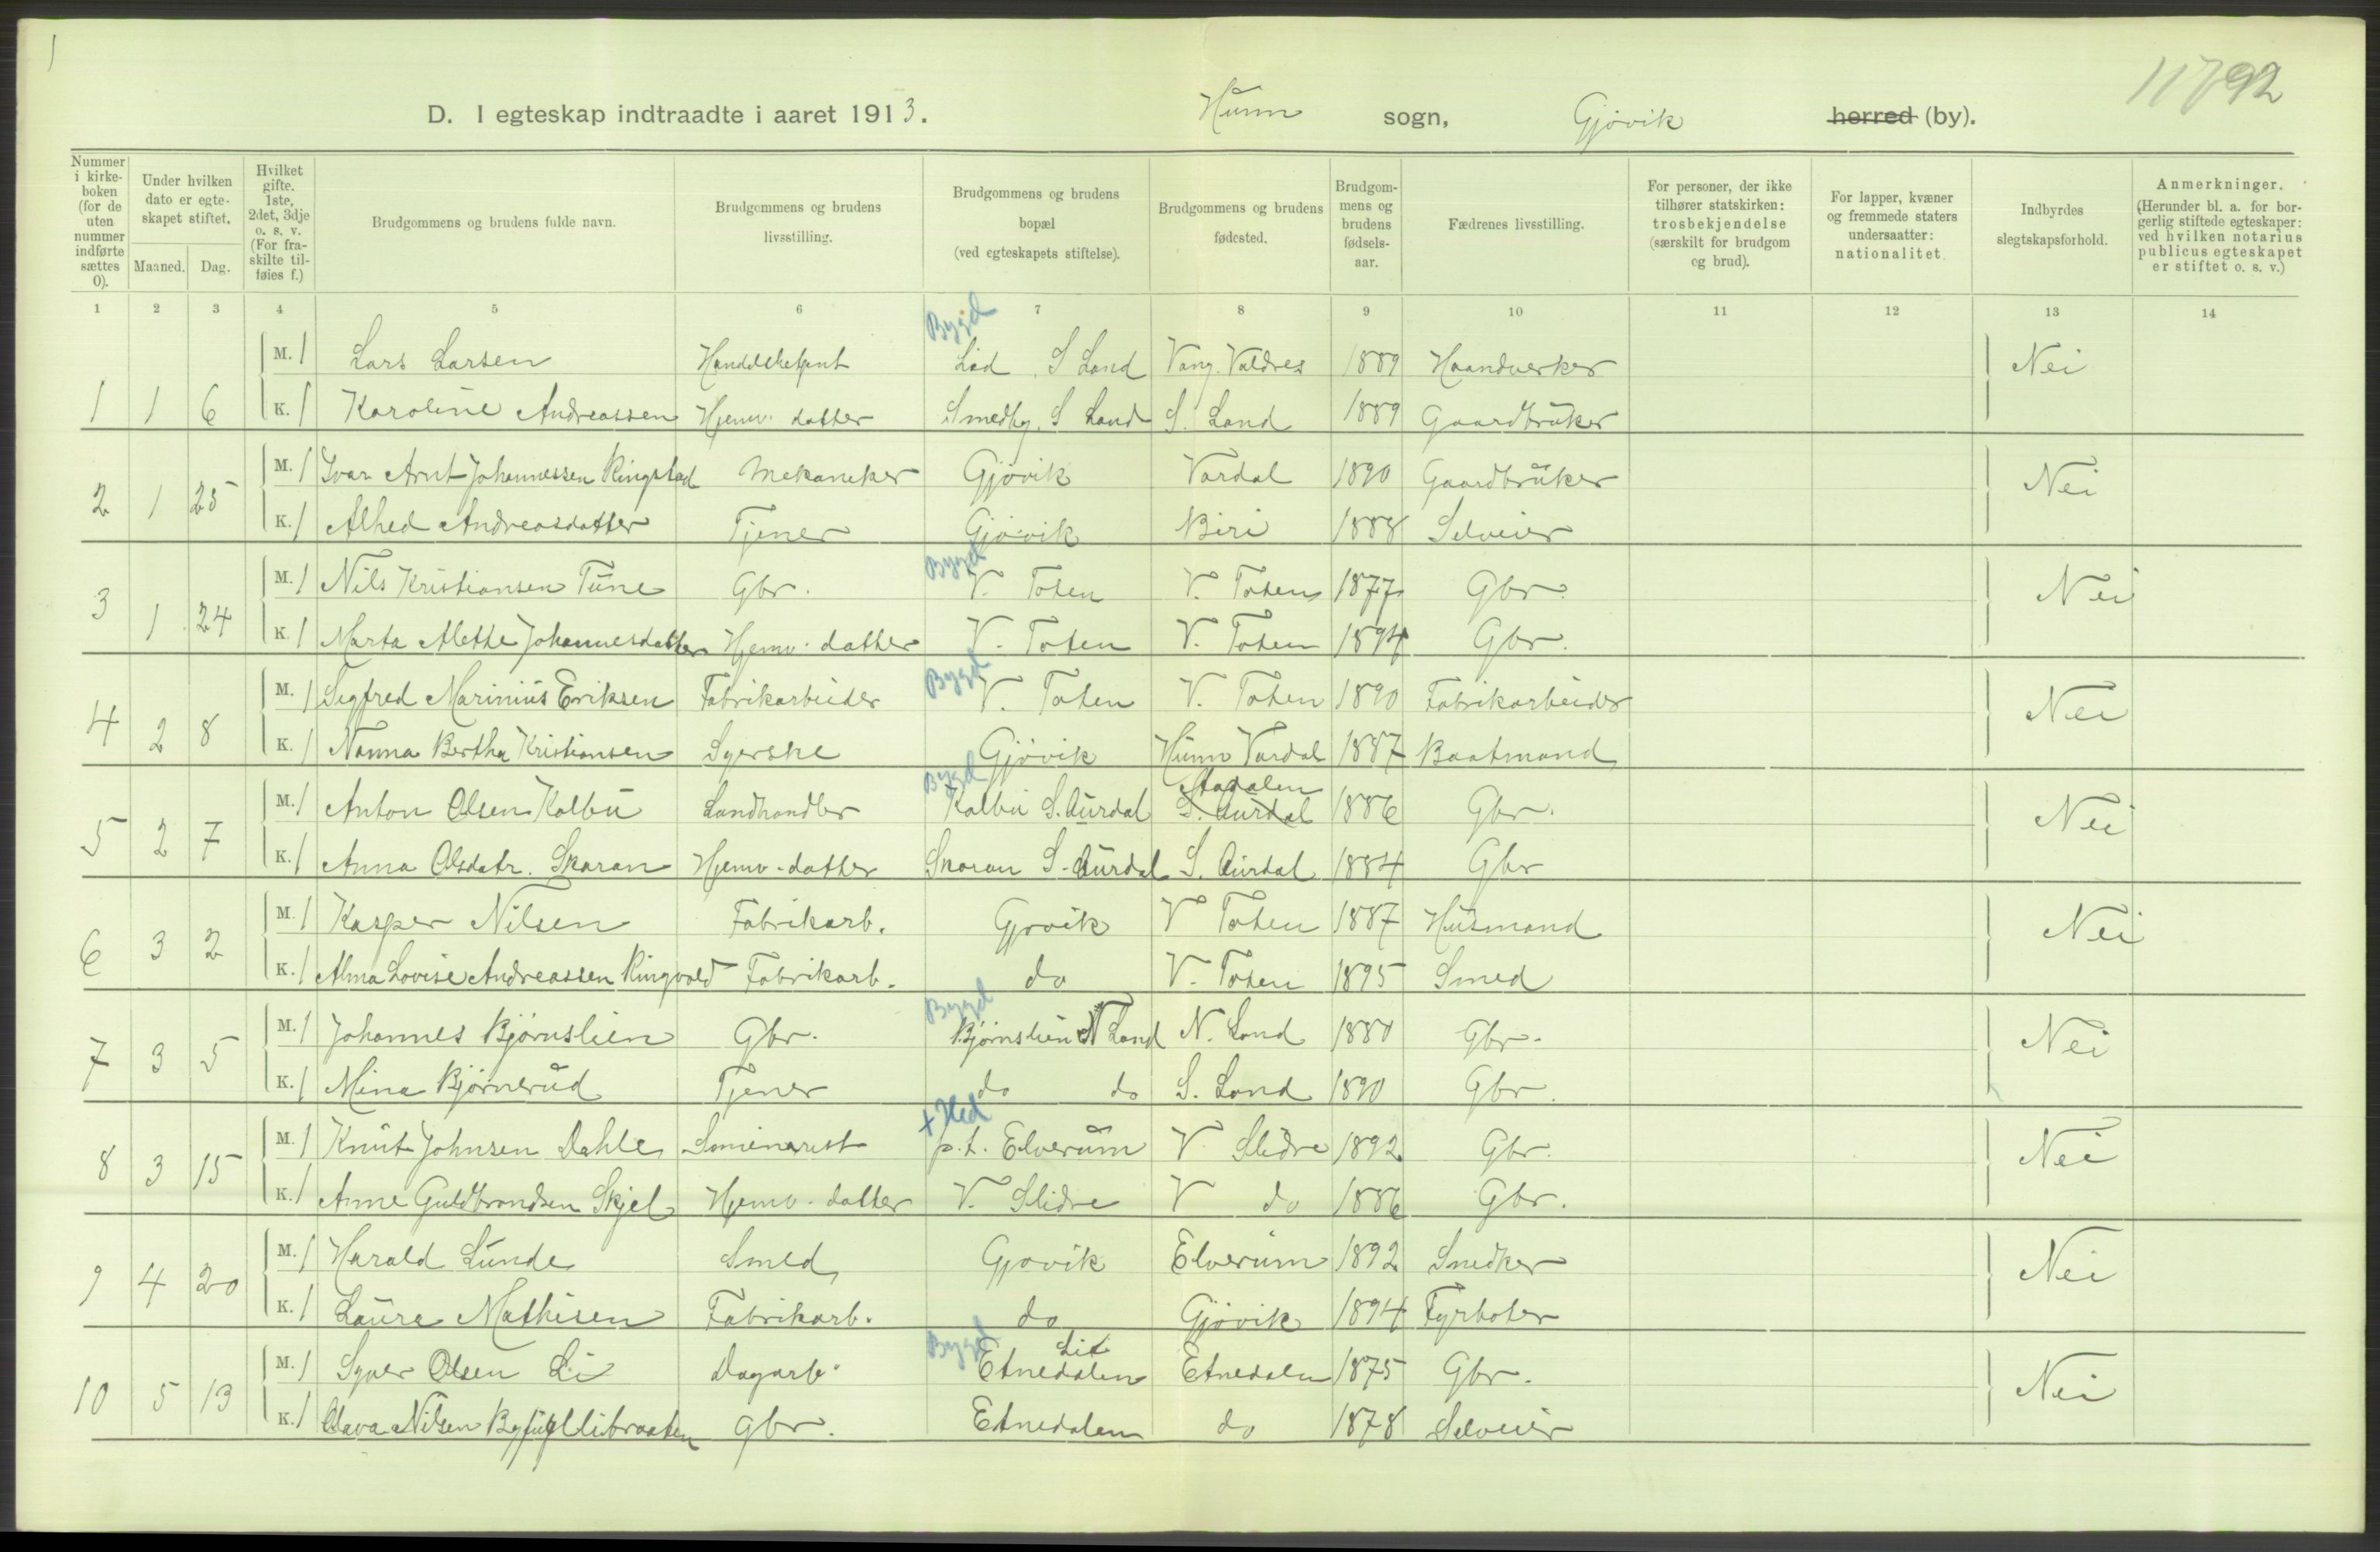 D. I egteskap indtraadte i aaret 1913. Hunn sogn, Gjøvik herred (by). 92
Nummer i kirkeboken (for de uten nummer indførte sættes 0). Under hvilken dato er egteskapet stiftet. Maaned. Dag. Hvilket gifte. 1ste, 2det, 3dje o. s. v. (For fraskilte tilføies f.) Brudgommens og brudens fulde navn. Brudgommens og brudens livsstilling. Brudgommens og brudens bopæl (ved egteskapets stiftelse). Brudgommens og brudens fødested. Brudgommens og brudens fødselsaar. Fædrenes livsstilling. For personer, der ikke tilhører statskirken: trosbekjendelse (særskilt for brudgom og brud). For lapper, kvæner og fremmede staters undersaatter: nationalitet. Indbyrdes slegtskapsforhold. Anmerkninger. (Herunder bl. a. for borgerlig stiftede egteskaper: ved hvilken notarius publicus egteskapet er stiftet o. s. v.)
1 2 3 4 5 6 7 8 9 10 11 12 13 14
Bygd
M. 1 Lars Larsen S Land Vang. Valdres 1889 Haandverker Nei
1 1 6 K. 1 Karoline Andreassen Hjemv. datter Smedby. S Land S. Land 1889 Gaardbruker
M. 1 Ivar Arnt Johannessen Ringstad Mekaneker Gjøvik Vardal 1890 Gaardbruker Nei
2 1 25 K. 1 Alhed Andreasdatter Tjener Gjøvik Biri 1888 Selveier
Bygd
M. 1 Nils Kristiansen Tune Gbr. V. Toten V. Toten 1877 Gbr. Nei
3 1 24 K. 1 Marta Alette Johannesdatter Hjemv. datter V. Toten V. Toten 1894 Gbr.
Bygd
M. 1 Sigfred Marinius Eriksen Fabrikarbeider V. Toten V. Toten 1890 Fabrikarbeider Nei
4 2 8 K. 1 Nanna Bertha Kristiansen Syerske Gjøvik Hunn Vardal 1887 Baatmand
Bygd
M. 1 Anton Olsen Kolbu Landhandler Kolbu S. Aurdal S. Aurdal 1886 Gbr. Nei
5 2 7 K. 1 Anna Olsdatr. Skaran Hjemv. datter Skaran S. Aurdal S. Aurdal 1884 Gbr
M. 1 Kasper Nilsen Fabrikarb. Gjøvik V Toten 1887 Husmand Nei
6 3 2 K. 1 Alma Lovise Andreassen Ringvold Fabrikarb. do V. Toten 1895 Smed
Bygd
M. 1 Johannes Bjørnslien Gbr. Bjørnslien N Land N. Land 1880 Gbr. Nei
7 3 5 K. 1 Mina Bjørnerud Tjener do do S. Land 1890 Gbr.
+ Hed
M. 1 Knut Johnsen Dahle Seminarist p.t. Elverum V Slidre 1892 Gbr. Nei
8 3 15 K. 1 Anne Guldbrandsen Skjel Hjemv. datter V. Slidre V do 1886 Gbr.
M. 1 Harald Lunde Smed Gjøvik Elverum 1892 Snedker Nei
9 4 20 K. 1 Laura Mathisen Fabrikarb. do Gjøvik 1894 Fyrbøter
Bygd
M. 1 Syver Olsen Li Dagarb. Etnedalen Etnedalen 1875 Gbr. Nei
10 5 13 K. 1 Olava Nilsen Gbr. Etnedalen do 1878 Selveier